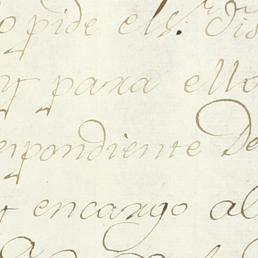 pide el s.r
para ello
spondiente De
encargo al